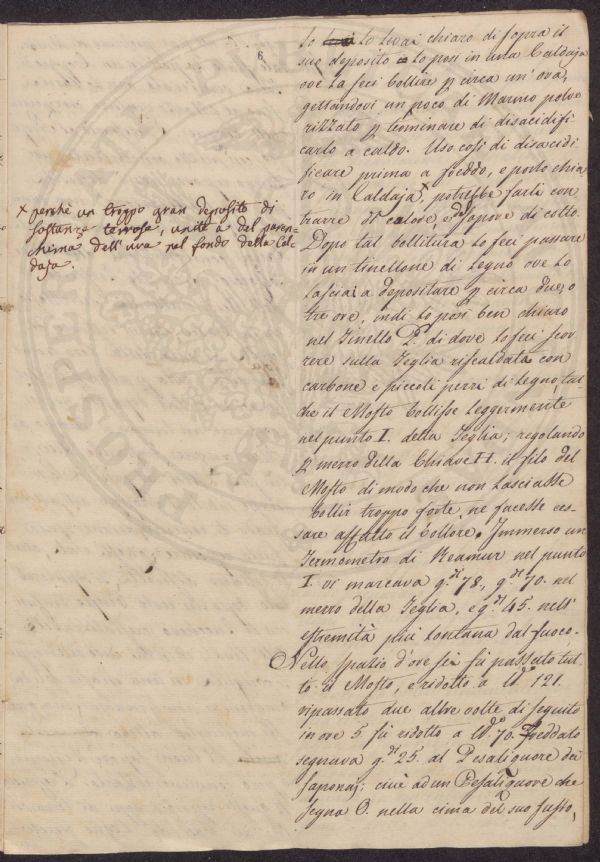 6
lo levai chiaro di sopra il
suo deposito lo posi in una Caldaja
ove la feci bollire p circa un'ora,
gettandovi un poco di Marmo polve
rizzato p terminare di disacidifi
carlo a caldo. Uso così di disacidi
ficare prima a freddo, e porlo chia
ro in Caldaja x potrebbe farli con
trarre del calore, e sapore di cotto.
Dopo tal bollitura lo feci passare
in un tinellone di Legno ove lo
lasciai a depositare p circa due, o
tre ore, indi lo posi ben chiaro
nel Tinello di dove lo feci scor
rere sulla Teglia riscaldata con
carbone e piccoli pezzi di legno, tal
che il Mosto bollisse leggermente
nel punto I. della Teglia; regolando
p mezzo della Chiave H. il filo del
Mosto di modo che non lasciasse
bollir troppo forte, ne facesse ces-
sare affatto il bollore. Immerso un
Termometro di Reamur nel punto
I. vi marcava g.di 78., g.di 70. nel
mezzo della Teglia, e g.di 45. nell'
estremità più lontana dal fuoco.
Nello spazio d'ore sei fù passato tut
to il Mosto, e ridotto a 121.
ripassato due altre volte di seguito
in ore 5 fù ridotto a 70. Freddato
segnava g.di 25. al Pesaliquore dei
saponaj; cioè ad un Pesaliquore che
segna 0. nella cima del suo fusto,
x perchè un troppo gran deposito di
sostanze terrose, unite a del paren-
chima dell'uva nel fondo della Cal-
daja.